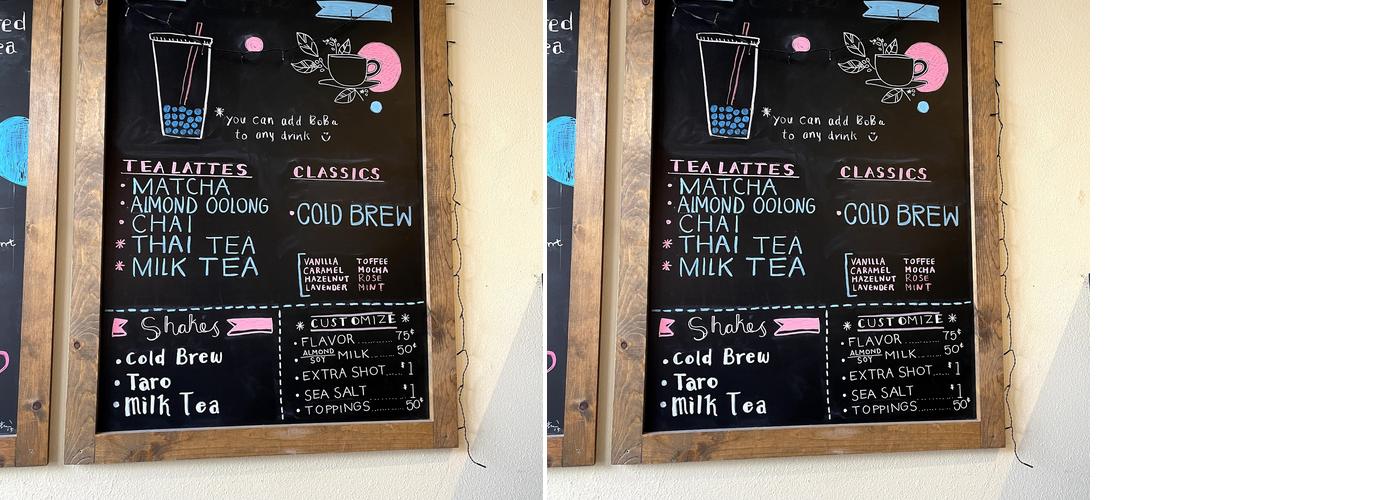 ted
ea
*you can add BoBa
to any drink
TEA LATTES
• MATCHA
• ALMOND OOLONG
• CHAI
* THAI TEA
* MILK TEA
CLASSICS
• COLD BREW
VANILLA TOFFEE
CARAMEL MOCHA
HAZELNUT ROSE
LAVENDER MINT
Shakes
• Cold Brew
• Taro
• Milk Tea
* CUSTOMIZE *
• FLAVOR.........75¢
• ALMOND SOY MILK......50¢
• EXTRA SHOT.....$1
• SEA SALT ........$1
• TOPPINGS.........50¢
ted
ea
*you can add BoBa
to any drink
TEA LATTES
• MATCHA
• ALMOND OOLONG
• CHAI
* THAI TEA
* MILK TEA
CLASSICS
• COLD BREW
VANILLA TOFFEE
CARAMEL MOCHA
HAZELNUT ROSE
LAVENDER MINT
Shakes
• Cold Brew
• Taro
• Milk Tea
* CUSTOMIZE *
• FLAVOR.........75¢
• ALMOND SOY MILK......50¢
• EXTRA SHOT.....$1
• SEA SALT ........$1
• TOPPINGS.........50¢